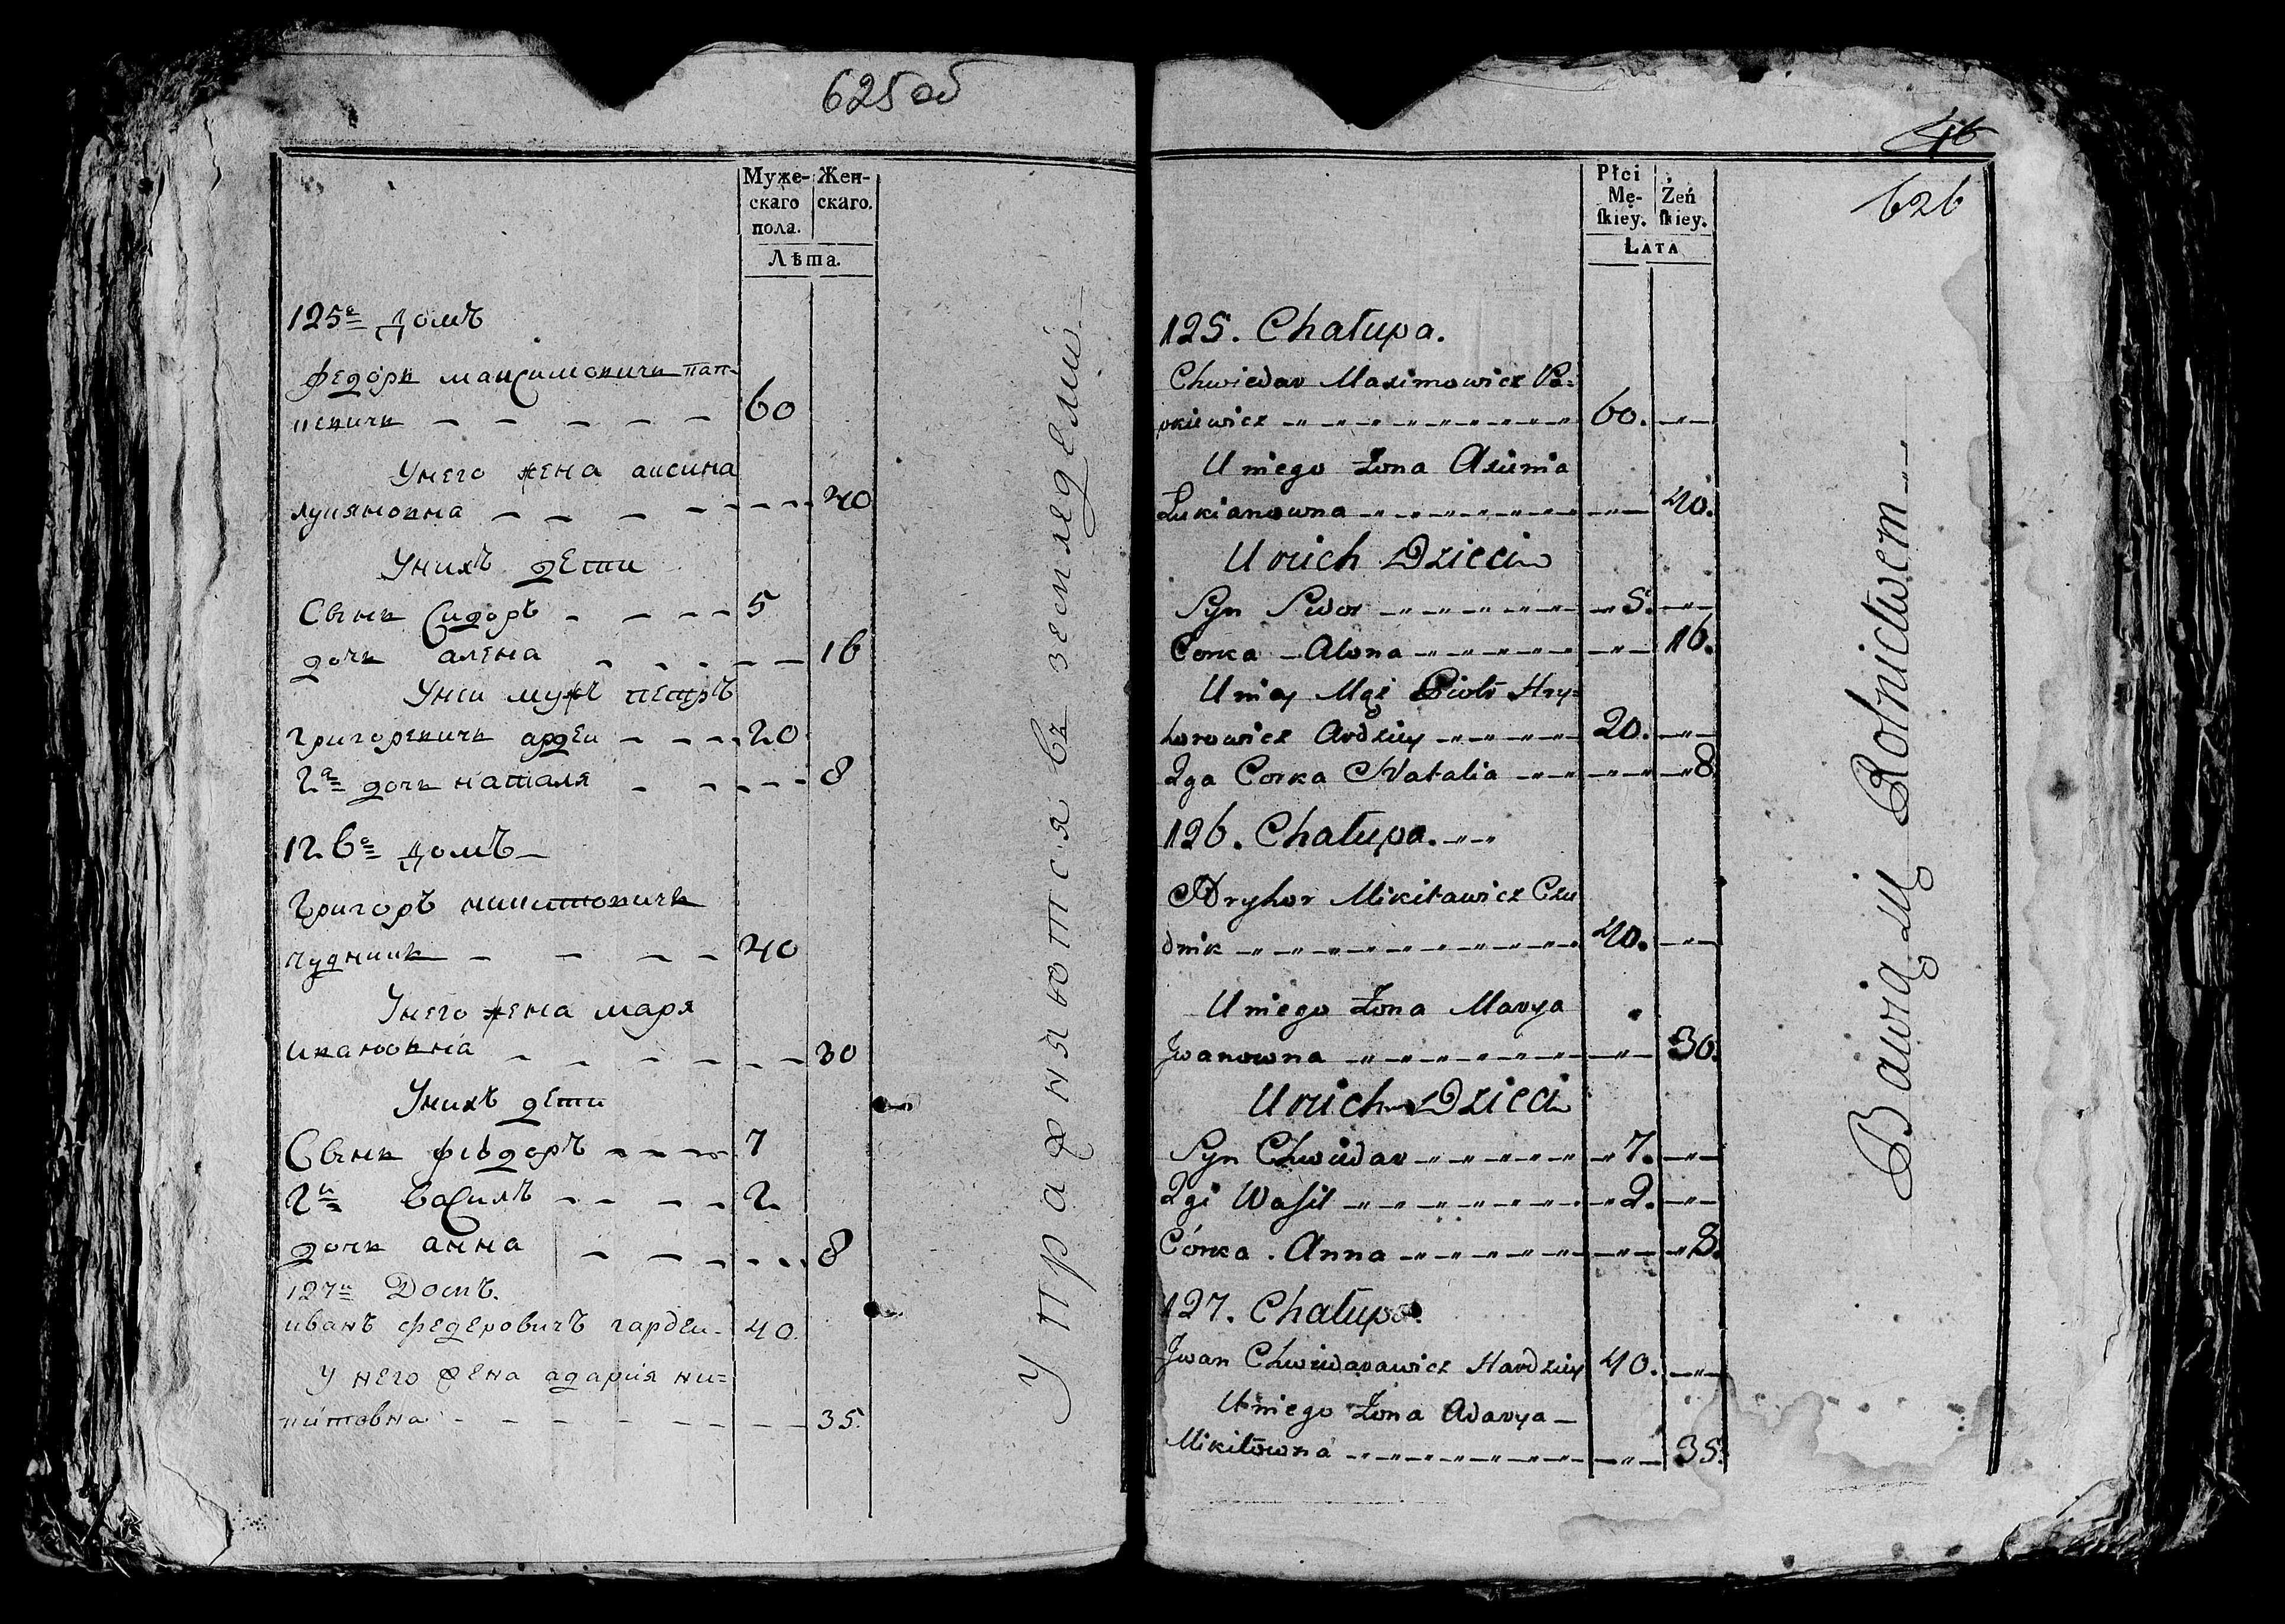 625об
Муже-
скаго
пола.
Жен-
скаго.
Лѣта.
125е домъ
федоръ максимовичъ пап-
кевичъ 60
Унего жена аксиня
лукяновна 40
Унихъ дети
Сынъ Сидоръ 5
дочъ алена 16
Уней мужъ петръ
григоревичъ ардеи 20
2а дочъ наталя 8
126е домъ
григоръ микитовичъ
чудникъ 40
Унего жена маря
ивановна 30
Унихъ дети
Сынъ фіодоръ 7
2й василъ 2
дочъ анна 8
127й Домъ.
иванъ федеровичъ гардеи 40
у него жена адарія ни=
китовна 35.
Упражняются въ земледелій
46
626
Płci
Mę-
ſkiey.
Żeń
ſkiey.
Lata
125. Chałupa.
Chwiedar Maximowicz Pa=
pkiewicz 60.
U niego Żona Axinia
Łukianowna 40.
U nich Dzieci
Syn Sidor 5.
Corka Alona 16.
U niey Mąż Piotr Hry=
horowicz Ardziey 20.
2ga Corka Natalia 8
126. Chałupa.
Hryhor Mikitawicz Czu
dnik 40.
U niego Żona Marya
Jwanowna 30.
U nich Dzieci
Syn Chwiedar 7.
2gi Waſil 2.
Córka . Anna 8.
127. Chałupa.
Jwan Chwiedarawicz Hardziey 40.
U niego Żona Adarya
Mikitowna 35.
Bawią się Rolnictwem